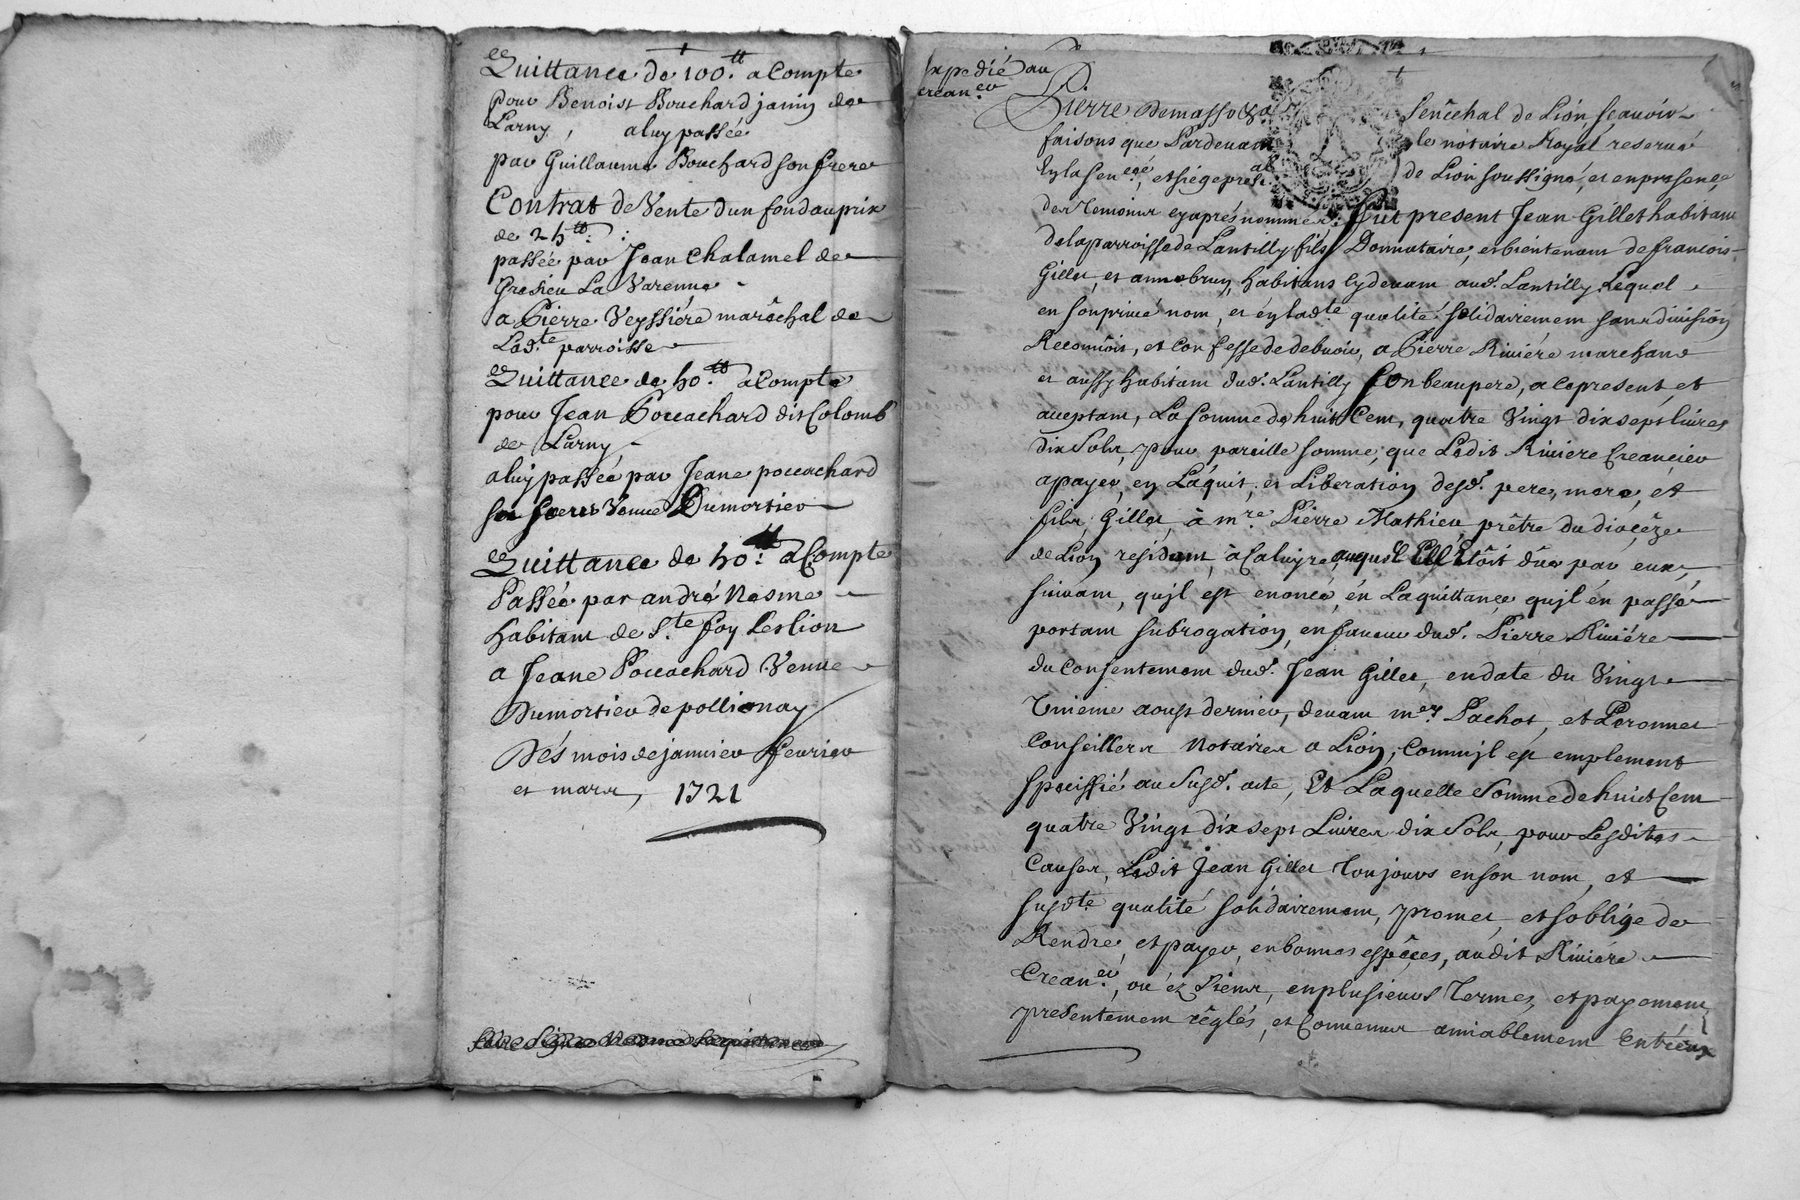 Quittance de 100.tt a Compte
pour Benoist Bouchard janin de
Larny, a luy passée
par Guillaume Bouchard son frere
Contrat de Vente dun fond au prix
de 2h tt :
passée par Jean Chalamel de
Gresieu La Varenne
a Pierre Veyssiére maréchal de
Lad.te parroisse
Quittance de ho.tt a Compte
pour Jean Poccachard dit Colomb
de Larny
a luy passée par Jeane poccachard
sa soeur Veuve Dumortier
Quittance de ho.tt a Compte
Passée par andré Nesme
habitant de S.te foy Les lion
a Jeane Poccachard Veuve
Dumortier de pollionay
Dés mois de janvier fevrier
et mars, 1721
Expedié au
crean.er
Pierre Demasso Sénéchal de Lion, scavoir
faisons que Pardevant le notaire Royal reservé
En la Sen.cée, et siége presi.al de Lion soussigné, et en presence
des temoins cy aprés nommés. fut present Jean Gillet habitant
de la parroisse de Lantilly fils Donnataire, et bientenant de francois
Gillet, et anne brun, habitans cy devant aud. Lantilly Lequel
en son privé nom, et én lad.te qualité solidairement sans division
Reconnoit, et Confesse de debvoir, a Pierre Riviére marchand
et aussy habitant dud. Lantilly son beaupere, a ce present, et
acceptant, La somme de huit Cent, quatre Vingt dix sept livres
dix Sols, pour pareille somme, que Ledit Riviere Creancier
a payer, en L'áquit, et Liberation desd. pere, mere, et
fils, Gillet, à m.re Pierre Mathieu prêtre du diocéze
de Lion residant, à Caluyre auquel Elle Etôit düe par eux,
suivant, qu'jl est enoncé, én La quittance qu'jl én passé
portant subrogation, en faveur dud. Pierre Riviére
du consentement dud. Jean Gillet, en date du Vingt
Troisieme aoust dernier, devant m.es Pachot, et Peronnet
Conseillers Notaires a Lion, Comm'jl est emplement
speciffié au Susd. acte, Et Laquelle Somme de huict Cent
quatre Vingt dix sept Livres dix Sols, pour Lesdites
Causes, Ledit Jean Gillet toujours en son nom, et
susd.te qualité solidairement, promet, et s'oblige de
Rendre, et payer, en bonnes espêces, audit Riviére
Crean.er, oú éz siens, en plusieurs termes, et payement
presentement réglés, et Convenus amiablement Entr'eux